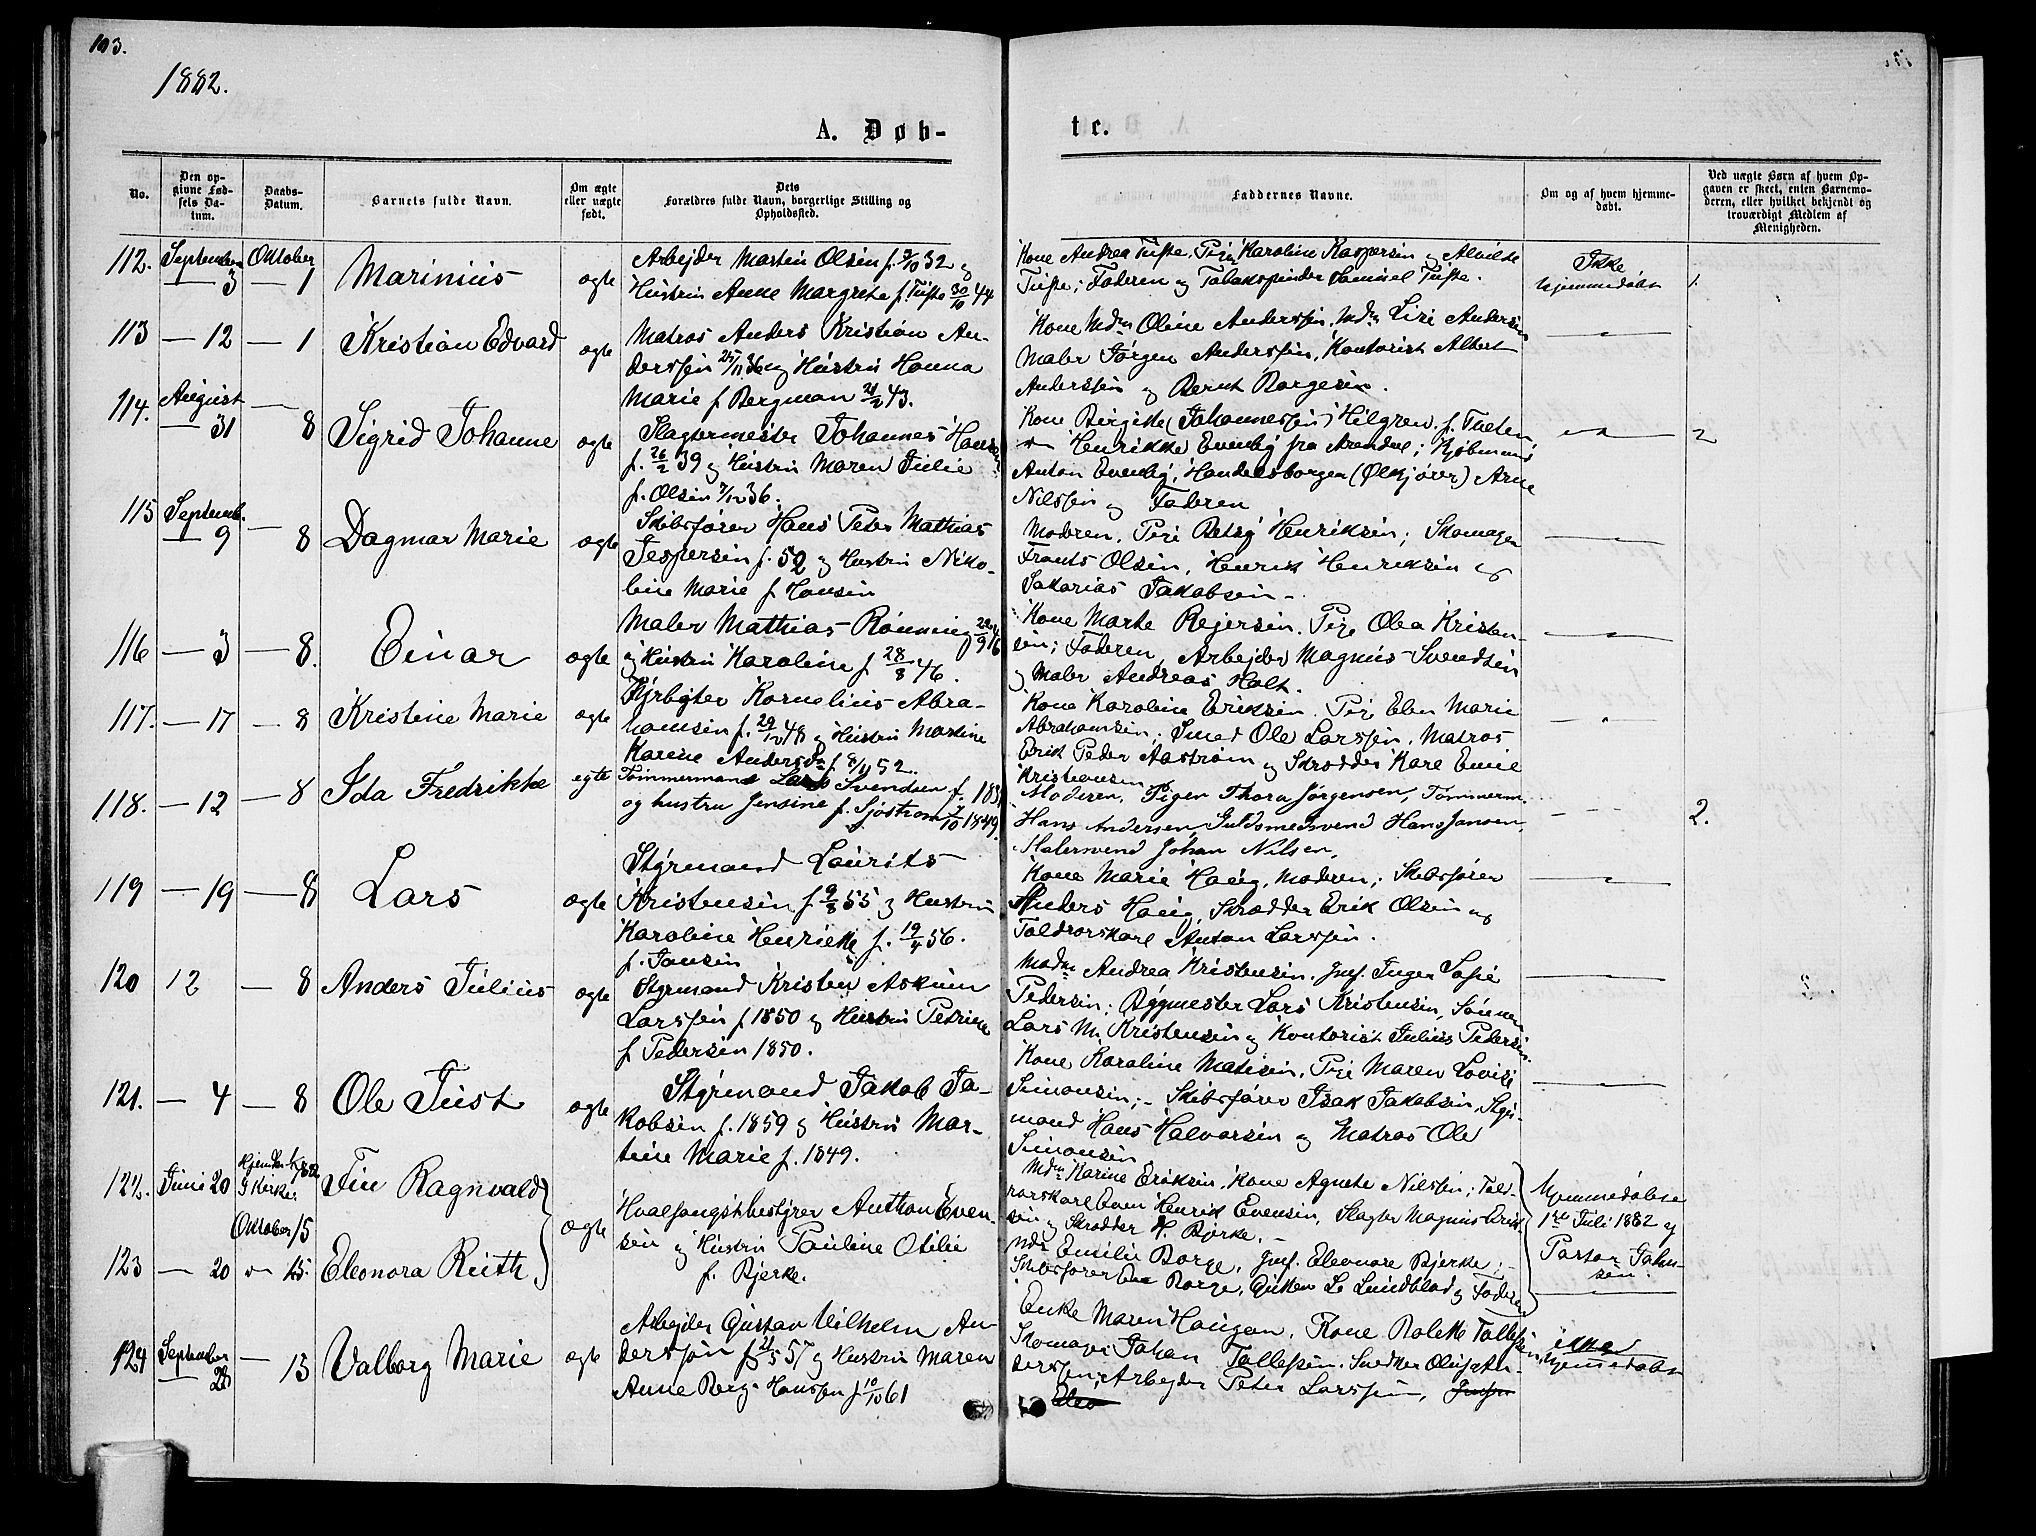 103.
1882.
A. Døb-
te.
No.
Den op-
givne Fød-
sels Da-
tum.
Daabs-
Datum.
Barnets fulde Navn.
Om ægte
eller uægte
født.
Dets
Forældres fulde Navn, borgerlige Stilling og
Opholdssted.
Faddernes Navne.
Om og af hvem hjemme-
døbt.
Ved uægte Børn af hvem Op-
gaven er skeet, enten Barnemo-
deren, eller hvilket bekjendt og
troværdigt Medlem af
Menigheden.
112. September 3 Oktober 1 Marinius ægte
Arbejder Martin Olsen f. 9/10 32 og
Hustru Anne Margrete f. Tufte 30/10 44
Kone Andrea Tufte, Pige Karoline Kaspersen og Alvilde
Tufte; Faderen og Tobakspinder Samuel Tufte.
Ikke
hjemmedøbt
1.
113 — 12 — 1 Kristian Edvard ægte
Matros Anders Kristian An-
derssen 25/11 36 og Hustru Hanna
Marie f. Bergman 21/2 43.
Kone Mdm Oline Anderssen, Mdm Lise Andersen
Maler Jørgen Anderssen, Kontorist Albert
Anderssen og Bernt Borgesen.
114. August 31 — 8 Sigrid Johanne ægte
Slagtermester Johannes Hansen
f. 26/2 39 og Hustru Maren Julie
f. Olsen 7/12 36.
Kone Birgitte (Johannessen) Hilgren f. Thelen
Henrikke Evenby fra Arendal; Kjøbmand
Anton Evenby, Handelsborger (Ølkjører) Arne
Nilssen og Faderen
2
115 Septemb. 9 — 8 Dagmar Marie ægte
Skibsfører Hans Peter Mathias
Jespersen f. 52 og Hustru Niko-
line Marie f. Hansen
Moderen, Pige Betsy Henriksen; Skomager
Frants Olsen, Henrik Henriksen og
Sakarias Jakobsen.
116 — 3 — 8. Einar ægte
Maler Mathias Rønning f 22/9 46
og Hustru Karoline f 28/8 46.
Kone Marte Rejersen, Pige Olea Kristen-
sen; Faderen, Arbejder Magnus Svendsen
og Maler Andreas Holt.
117. — 17 — 8 Kristine Marie ægte
Fyrbøter Kornelius Abra-
hamsen f. 29/12 48 og Hustru Martine
Karine Andersd. f. 8/11 52.
Kone Karoline Eriksen, Pige Elen Marie
Abrahamsen; Smed Ole Larssen, Matros
Erik Peder Aastrøm og Skrædder Karl Emil
Kristiansen
118. — 12 — 8 Ida Fredrikke egte
Tømmermand Lars Svendsen f. 183
og hustru Jensine f. Sjøstrøm 7/10 1849.
Moderen, Pigen Thora Jørgensen, Tømmerm.
Hans Andersen, Guldsmedsvend Hans Jansen,
Malersvend Johan Nilsen,
2.
119 — 19 — 8 Lars ægte
Styrmand Laurits
Kristensen f. 9/8 55 og Hustru
Karoline Henriette f. 19/4 56.
f. Jansen
Kone Marie Haug, Moderen; Skibsfører
Anders Haug, Skrædder Erik Olsen og
Toldrorskarl Anton Larssen.
120 12 — 8 Anders Julius ægte
Styrmand Kristen Askum
Larssen f 1850 og Hustru Petrine
f Pedersen 1850.
Madm Andrea Kristensen, Jmf. Inger Sofie
Pedersen; Bygmester Lars Kristensen, Sønnen
Lars M. Kristensen og Kontorist Julius Pedersen.
121. — 4 — 8 Ole Just ægte
Styrmand Jakob Ja-
kobsen f. 1859 og Hustru Mar-
tine Marie f. 1849.
Kone Karoline Matisen, Pige Maren Lovise
Simonsen; — Skibsfører Isak Jakobsen, Styr-
mand Hans Halvorsen og Matros Ole
Simonsen
122. Juni 20 Hjemdøbt 1/7 82 I Kirken Oktober 15 Fin Ragnvald ægte
Hvalfangstbestyrer Anthon Even-
sen og Hustru Pauline Otilie
f. Bjerke.
Mdm Karine Eriksen, Kone Agnete Nilssen; Told-
rorskarl Even Henrik Evensen, Slagter Magnus Erik-
sen og Skrædder H. Bjerke. —
Hjemmedøbte
1ste Juli 1882 af
Pastor Johan-
sen.
123 — 20 — 15. Eleonora Ruth
Mdm Emilie Borge, Jmf. Eleonore Bjerke; —
Skibsfører Borge, Lundblad og Faderen
124 September 28 — 15 Valborg Marie ægte
Arbejder Gustav Vilhelm An-
derssøn f 21/5 57 og Hustru Maren
Anne Berg. Hanssen f 10/10 61
Enke Maren Haugan, Kone Bolette Tollefsen,
Skomager Johan Tollefsen, Snedker An-
derssen, Arbejder Peter Larssen,
ikke
hjemmedøbt